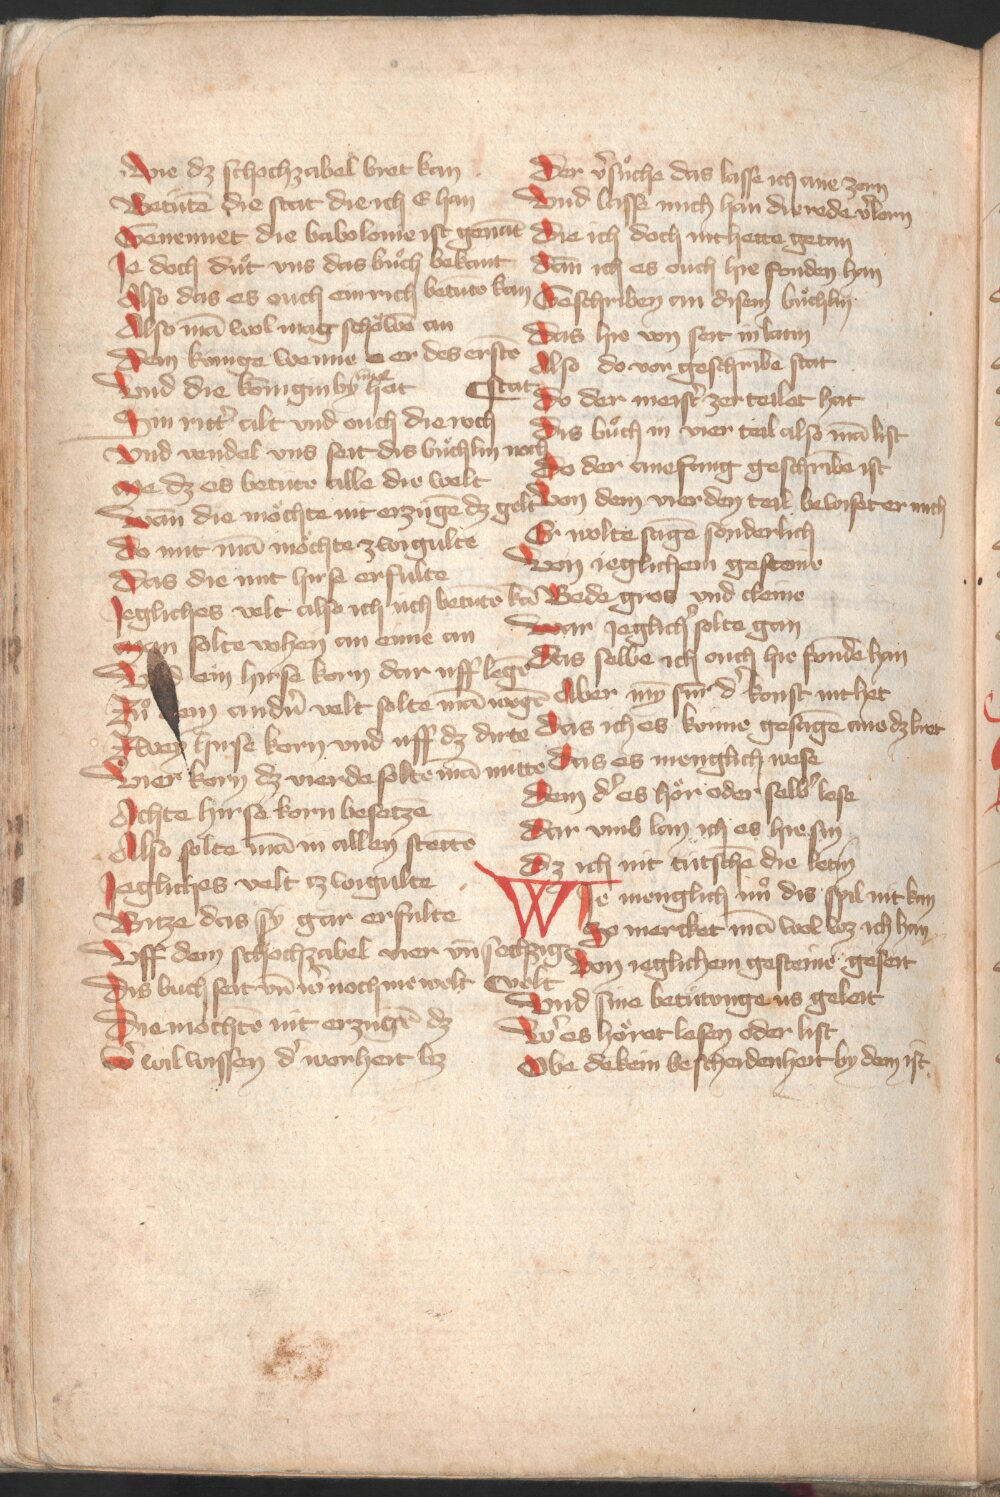 Wie dz schochzabel bret kan
Betútē die stat die ich E han
Genennet die babolonie ist genāt
Je doch důt vns das bůch bekant
Also das es ouch ein rich betutē kan
Also mā wol mag schöwē an
Dem kúnige wenne er des erstē
Vnd die kúnigin by ime hat ¶ stat
Sin rittˀ alt vnd ouch die roch
Vnd vendel vns seit dis bůchlin noch
We dz es betúte alle die welt
Wān die möchte nit erzúgē dz gelt
Do mit mā möchte zwigulte
Das die mit hirse erfulte
Jegliches velt also ich úch betutē kā
Man solte vohen an eime an
Vnd ein hirse korn dar uff legē
Zů eim andˀn velt solte mā wegē
Zwey hirse korn vnd uff dz dirte
Vier korn dz vierde solte mā mitte
Achte hirse korn besetze
Also solte mā in allen stettē
Jegliches velt tz wigulte
Bitze das sy gar erfulte
Vff dem schochzabel vier vn̄ sechzig
Dis buch seit vn̄ wˀ noch me welt ¶ velt
Die möchtē nit erzúgē dz
Wˀ wil wissen dˀ worheit wz
Der vˀsůche das lasse ich ane zorn
Vnd lasse mich han die rede vˀlorn
Die ich doch nit hette getan
Dān ich es ouch hie fonden han
Geschriben an disem bůchlin
Das hie von seit in latin
Also do vor geschribē stat
Do der meistˀ zerteilet hat
Dis bůch in vier teil also mā list
Do der anefang geschribē ist
Von dem vierden teil bewiset er mich
Er wolte sagē sonderlich
Von ieglichem gesteine
Bede gros vnd cleine
War Jeglichˀ solte gan
Das selbe ich ouch hie fondē han
Aber my sin dˀ konst nit het
Das ich es könne gesagē ane dz bret
Das es menglich wese
Dem dˀ es hör oder selbˀ lese
Dar vmb lan ich es hie sin
Dz ich nit tútschē die letin
Wie menglich nů dis spil nit kan
So mercket mā wol wz ich han
Von ieglichem gesteine geseit
Vnd sine betútonge us geleit
Wˀ es höret lesen oder list
Obe dekein bescheidenheit by dem ist